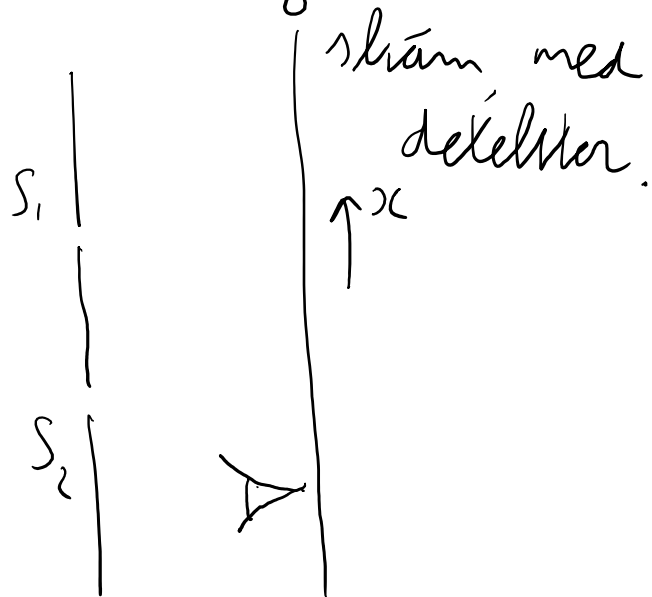 skärm med
detektor.
S₁
x
S₂